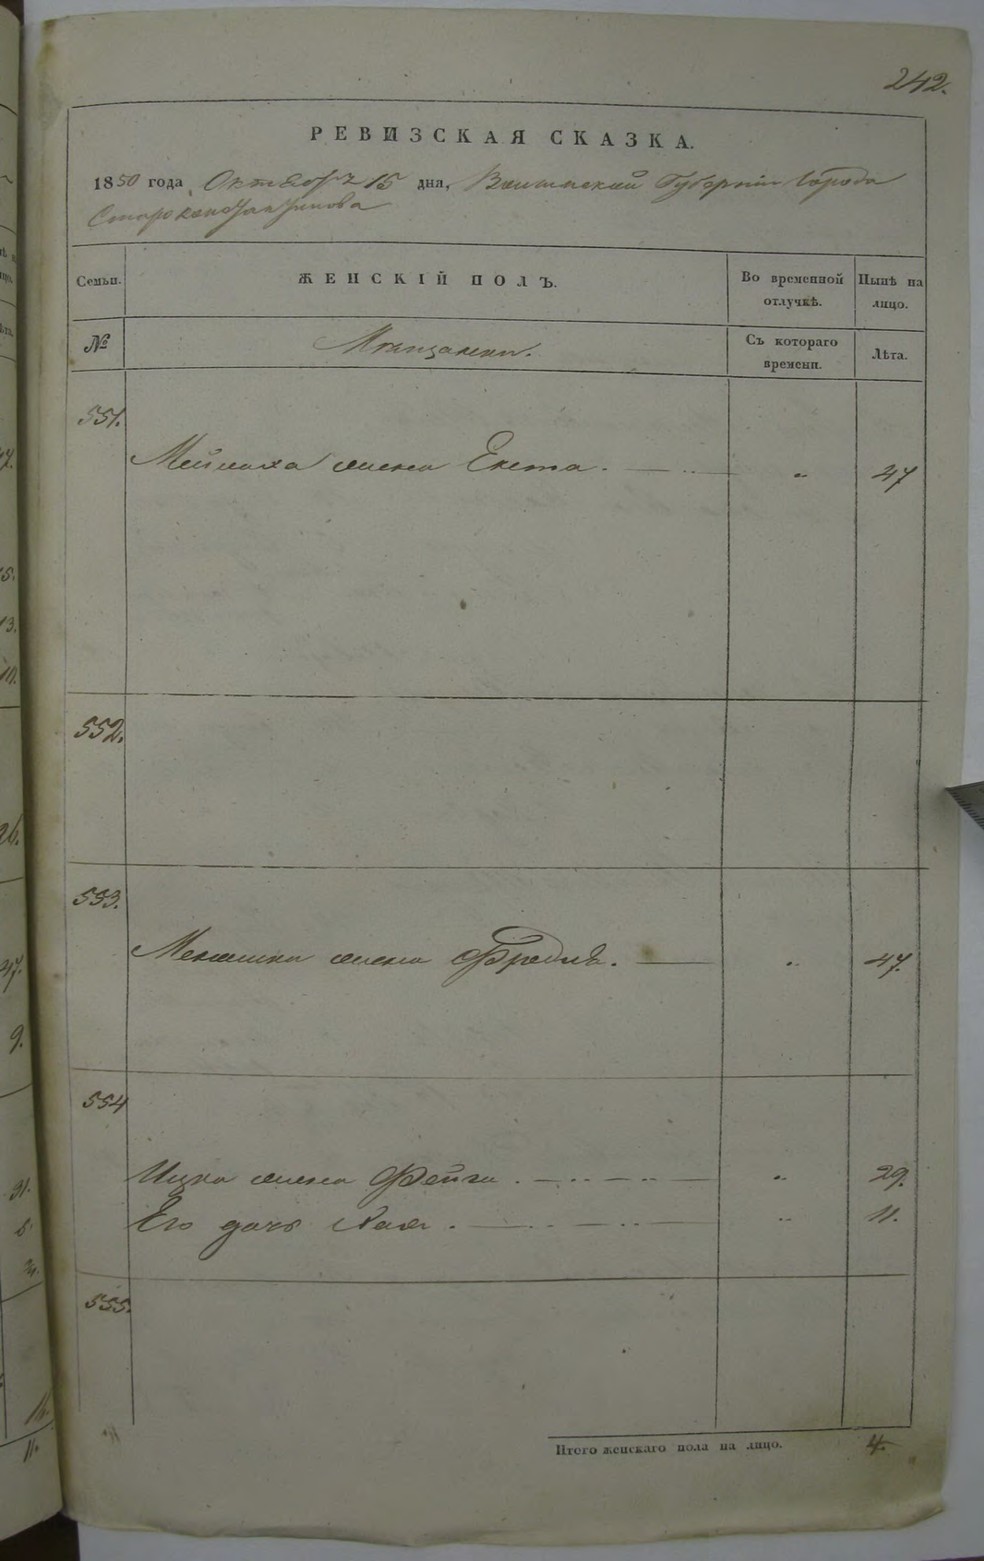 242.
РЕВИЗСКАЯ СКАЗКА.
1850 года Октября 15 дня, Волынской Губернии Города
Староконстантинова
Семьи. ЖЕНСКІЙ ПОЛЪ. Во временной отлучкѣ. Нынѣ на лицо.
№ Мѣщански. Съ котораго времени. Лѣта.
551.
Мейлаха жена Екета. „ 47
552.
553.
Менашка жена Фрадля. „ 47.
554
Ицка жена Фейга. „ 29.
Его дочь Хая. „ 11.
555.
Итого женскаго пола на лицо. 4.
7.
15.
13.
10.
26.
47.
9.
31.
11.